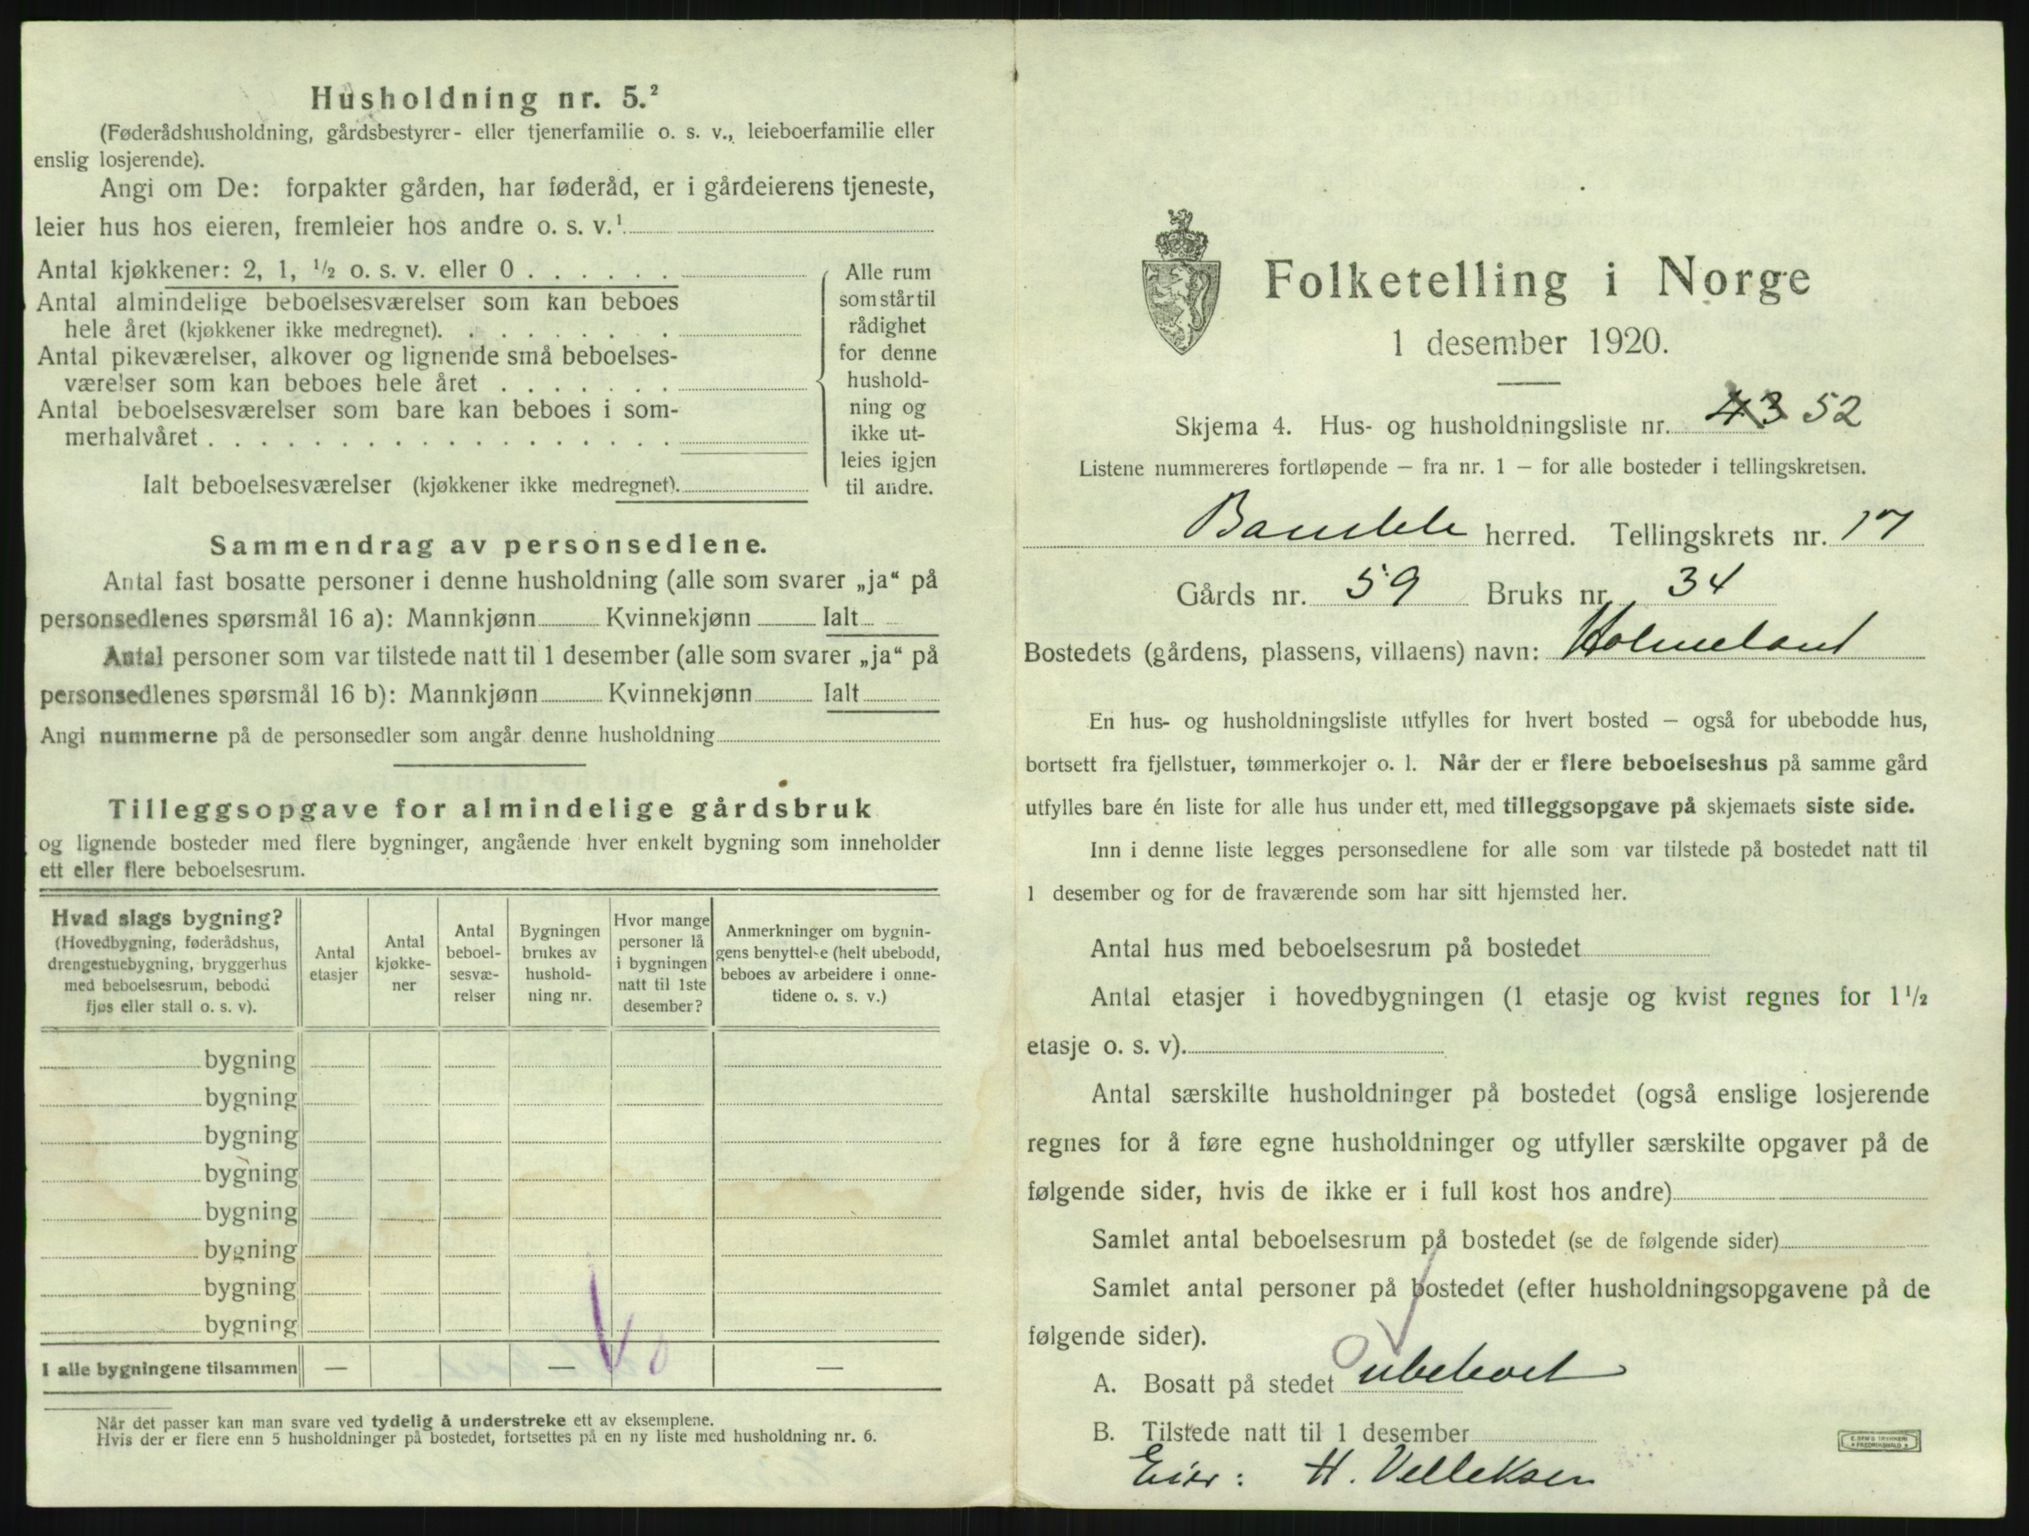 Husholdning nr. 5.²
(Føderådshusholdning, gårdsbestyrer- eller tjenerfamilie o. s. v., leieboerfamilie eller
enslig losjerende).
Angi om De: forpakter gården, har føderåd, er i gårdeierens tjeneste,
leier hus hos eieren, fremleier hos andre o. s. v.¹
Antal kjøkkener: 2, 1, ½ o. s. v. eller 0 . . . . . .
Antal almindelige beboelsesværelser som kan beboes
hele året (kjøkkener ikke medregnet). . . . . . . . .
Antal pikeværelser, alkover og lignende små beboelses-
værelser som kan beboes hele året . . . . . . .
Antal beboelsesværelser som bare kan beboes i som-
merhalvåret . . . . . . . . . . . . . . . . . .
Ialt beboelsesværelser (kjøkkener ikke medregnet).
Alle rum
som står til
rådighet
for denne
hushold-
ning og
ikke ut-
leies igjen
til andre.
Sammendrag av personsedlene.
Antal fast bosatte personer i denne husholdning (alle som svarer „ja“ på
personsedlenes spørsmål 16 a): Mannkjønn Kvinnekjønn Ialt
Antal personer som var tilstede natt til 1 desember (alle som svarer „ja“ på
personsedlenes spørsmål 16 b): Mannkjønn Kvinnekjønn Ialt
Angi nummerne på de personsedler som angår denne husholdning
Tilleggsopgave for almindelige gårdsbruk
og lignende bosteder med flere bygninger, angående hver enkelt bygning som inneholder
ett eller flere beboelsesrum.
Hvad slags bygning?
(Hovedbygning, føderådshus,
drengestuebygning, bryggerhus
med beboelsesrum, bebodd
fjøs eller stall o. s. v).
Antal
etasjer
Antal
kjøkke-
ner
Antal
beboel-
sesvæ-
relser
Bygningen
brukes av
hushold-
ning nr.
Hvor mange
personer lå
i bygningen
natt til 1ste
desember?
Anmerkninger om bygnin-
gens benyttelse (helt ubebodd,
beboes av arbeidere i onne-
tidene o. s. v.)
bygning
bygning
bygning
bygning
bygning
bygning
bygning
bygning
I alle bygningene tilsammen — — 0 —
Når det passer kan man svare ved tydelig å understreke ett av eksemplene.
Hvis der er flere enn 5 husholdninger på bostedet, fortsettes på en ny liste med husholdning nr. 6.
Folketelling i Norge
1 desember 1920.
Skjema 4. Hus- og husholdningsliste nr. 43 52
Listene nummereres fortløpende — fra nr. 1 — for alle bosteder i tellingskretsen.
Bamble herred. Tellingskrets nr. 17
Gårds nr. 59 Bruks nr. 34
Bostedets (gårdens, plassens, villaens) navn: Holmeland
En hus- og husholdningsliste utfylles for hvert bosted — også for ubebodde hus,
bortsett fra fjellstuer, tømmerkojer o. l. Når der er flere beboelseshus på samme gård
utfylles bare én liste for alle hus under ett, med tilleggsopgave på skjemaets siste side.
Inn i denne liste legges personsedlene for alle som var tilstede på bostedet natt til
1 desember og for de fraværende som har sitt hjemsted her.
Antal hus med beboelsesrum på bostedet
Antal etasjer i hovedbygningen (1 etasje og kvist regnes for 1½
etasje o. s. v).
Antal særskilte husholdninger på bostedet (også enslige losjerende
regnes for å føre egne husholdninger og utfyller særskilte opgaver på de
følgende sider, hvis de ikke er i full kost hos andre)
Samlet antal beboelsesrum på bostedet (se de følgende sider)
Samlet antal personer på bostedet (efter husholdningsopgavene på de
følgende sider).
A. Bosatt på stedet 0 ubeboet
B. Tilstede natt til 1 desember
Eier: H. Velleksen